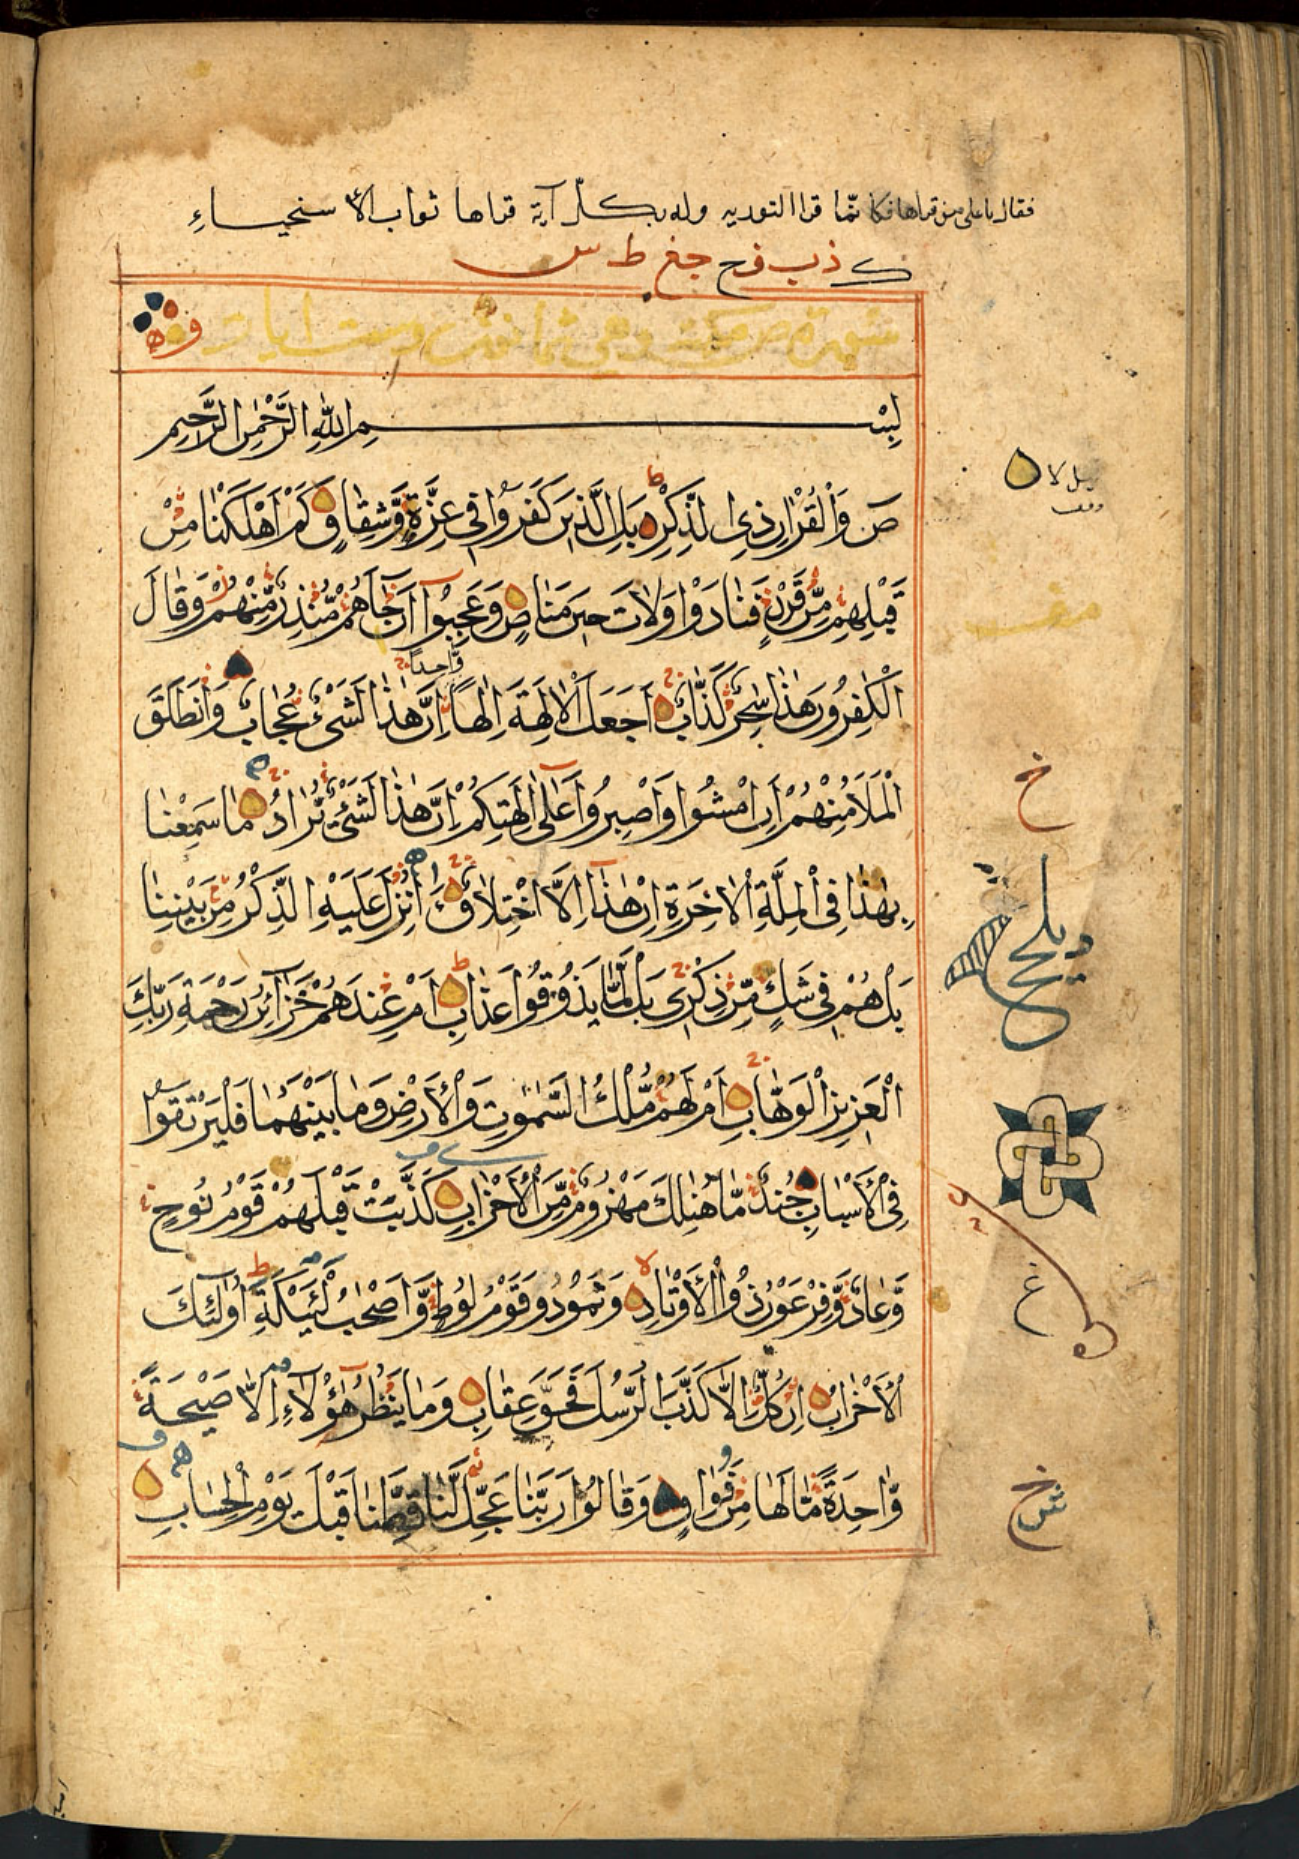 فقال يا على من قراها فكا نما قرا التوريه وله بكل آية قراها ثواب الأ سنحياءِ
ك ذب فح جغ ط س
سورة ص مكية وهي ثمانون وست ايات
بِسْمِ اللّٰهِ الرَّحْمٰنِ الرَّحِيمِ
صٓ وَالْقُرْاٰنِ ذِي الذِّكْرِ بَلِ الَّذِينَ كَفَرُوا فِي عِزَّةٍ وَّشِقَاقٍ كَمْ اَهْلَكْنَا مِنْ
قَبْلِهِمْ مِّنْ قَرْنٍ فَنَادَوْا وَلَاتَ حِينَ مَنَاصٍ وَعَجِبُوا اَنْ جَآءَهُمْ مُّنْذِرٌ مِّنْهُمْ وَقَالَ
الْكٰفِرُونَ هٰذَا سٰحِرٌ كَذَّابٌ اَجَعَلَ الْاٰلِهَةَ اِلٰهًا وَّاحِدًا اِنَّ هٰذَا لَشَيْءٌ عُجَابٌ وَانْطَلَقَ
الْمَلَاُ مِنْهُمْ اَنِ امْشُوا وَاصْبِرُوا عَلٰٓى اٰلِهَتِكُمْ اِنَّ هٰذَا لَشَيْءٌ يُّرَادُ مَا سَمِعْنَا
بِهٰذَا فِي الْمِلَّةِ الْاٰخِرَةِ اِنْ هٰذَآ اِلَّا اخْتِلَاقٌ ءَاُنْزِلَ عَلَيْهِ الذِّكْرُ مِنْ بَيْنِنَا
بَلْ هُمْ فِي شَكٍّ مِّنْ ذِكْرِي بَلْ لَّمَّا يَذُوقُوا عَذَابِ اَمْ عِنْدَهُمْ خَزَآئِنُ رَحْمَةِ رَبِّكَ
الْعَزِيزِ الْوَهَّابِ اَمْ لَهُمْ مُّلْكُ السَّمٰوٰتِ وَالْاَرْضِ وَمَا بَيْنَهُمَا فَلْيَرْتَقُوا
فِي الْاَسْبَابِ جُنْدٌ مَّا هُنَالِكَ مَهْزُومٌ مِّنَ الْاَحْزَابِ كَذَّبَتْ قَبْلَهُمْ قَوْمُ نُوحٍ
وَّعَادٌ وَّفِرْعَوْنُ ذُو الْاَوْتَادِ وَثَمُودُ وَقَوْمُ لُوطٍ وَّاَصْحٰبُ لْئَيْكَةِ اُولٰٓئِكَ
الْاَحْزَابُ اِنْ كُلٌّ اِلَّا كَذَّبَ الرُّسُلَ فَحَقَّ عِقَابِ وَمَا يَنْظُرُ هٰٓؤُلَآءِ اِلَّا صَيْحَةً
وَّاحِدَةً مَّا لَهَا مِنْ فَوَاقٍ وَقَالُوا رَبَّنَا عَجِّلْ لَّنَا قِطَّنَا قَبْلَ يَوْمِ الْحِسَابِ
خ
غ